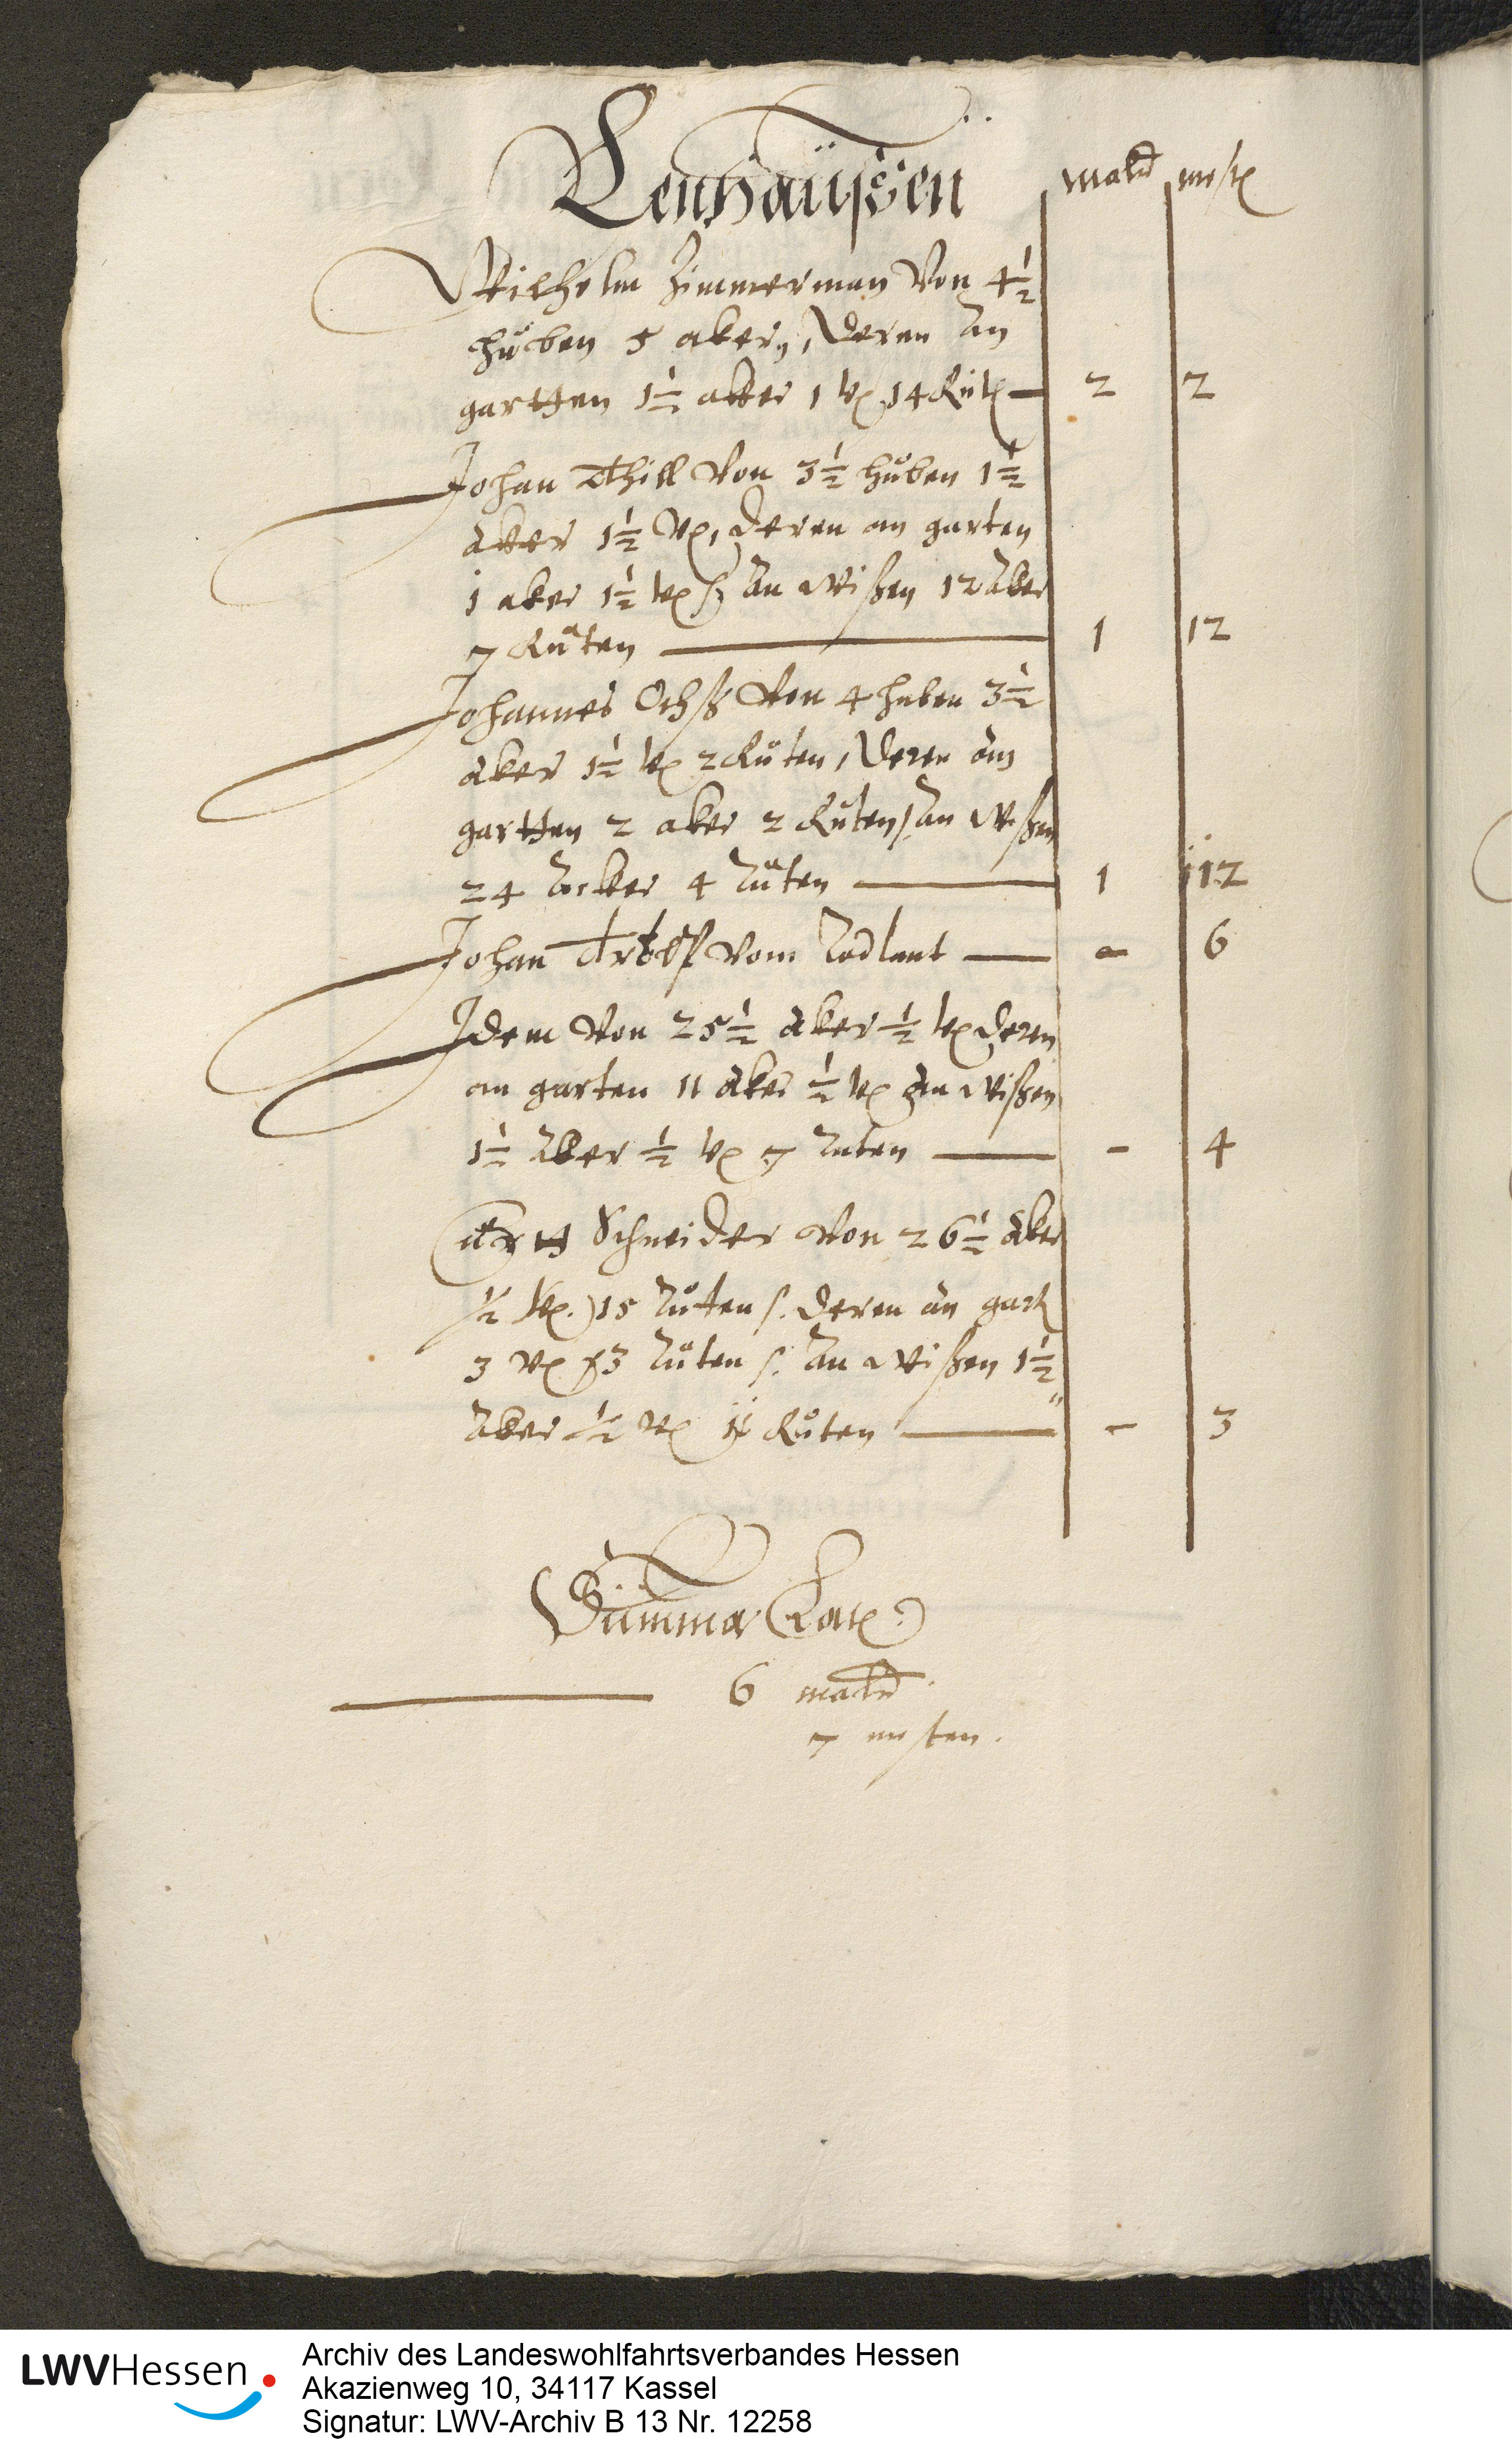 Lenhaüsen
maltr mest
Wilhelm Zimmerman Von 4½
huben 5 aker, Deren An
gartten 1½ aker 1 vt 14 Rut — 2 2
Johan Thill Von 3½ huben 1½
aker 1½ vt, Deren an garten
1 aker 1½ vt An Wißen 12 Aker
7 Ruten — 1 12
Johannes Ochß Von 4 huben 3½
aker 1½ vt 2 Ruten, Deren an
gartten 2 aker 2 Ruten, An Wißen
24 Acker 4 Ruten — 1 12
Johan Vom Rodlant — - 6
Idem Von 25½ aker ½ vt Deren
an garten 11 aker ½ vt An Wißen
1½ Aker ½ vt 7 Ruten — - 4
Schneider Von 26½ aker
½ vt. 15 Ruten. Deren an gart
3 vt 3 Ruten. An Wißen 1½
Aker ½ vt Ruten — - 3
Summa Lat
6 maltr
7 mesten.
LWVHessen
Archiv des Landeswohlfahrtsverbandes Hessen
Akazienweg 10, 34117 Kassel
Signatur: LWV-Archiv B 13 Nr. 12258